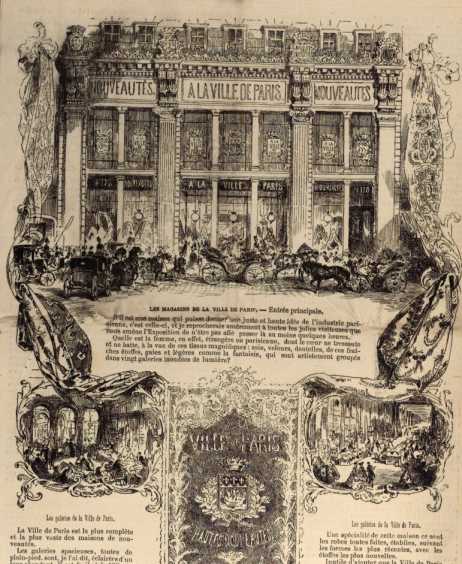 NOUVEAUTÉS
A LA VILLE DE PARIS
NOUVEAUTES
A LA VILLE PARIS
LES MAGASINS DE LA VILLE DE PARIS. — Entrée principale.
S'il est une maison qui puisse donner une juste et haute idée de l'industrie pari-
sienne, c'est celle-ci, et je reprocherais amèrement à toutes les jolies visiteuses que
nous amène l'Exposition de n'être pas allé passer là au moins quelques heures.
Quelle est la femme, en effet, étrangère ou parisienne, dont le cœur ne tressaute
et ne batte, à la vue de ces tissus magnifiques : soie, velours, dentelles, de ces fraî-
ches étoffes, gaies et légères comme la fantaisie, qui sont artistement groupés
dans vingt galeries inondées de lumière?
VILLE DE PARIS
HAUTE NOUVEAUTÉ
Les galeries de la Ville de Paris.
La Ville de Paris est la plus complète
et la plus vaste des maisons de nou-
veautés.
Les galeries spacieuses, toutes de
plain-pied, sont, je l'ai dit, éclairées d'un
Les galeries de la Ville de Paris.
Une spécialité de cette maison ce sont
les robes toutes faites, établies, suivant
les formes les plus récentes, avec les
étoffes les plus nouvelles.
Inutile d'ajouter que la Ville de Paris